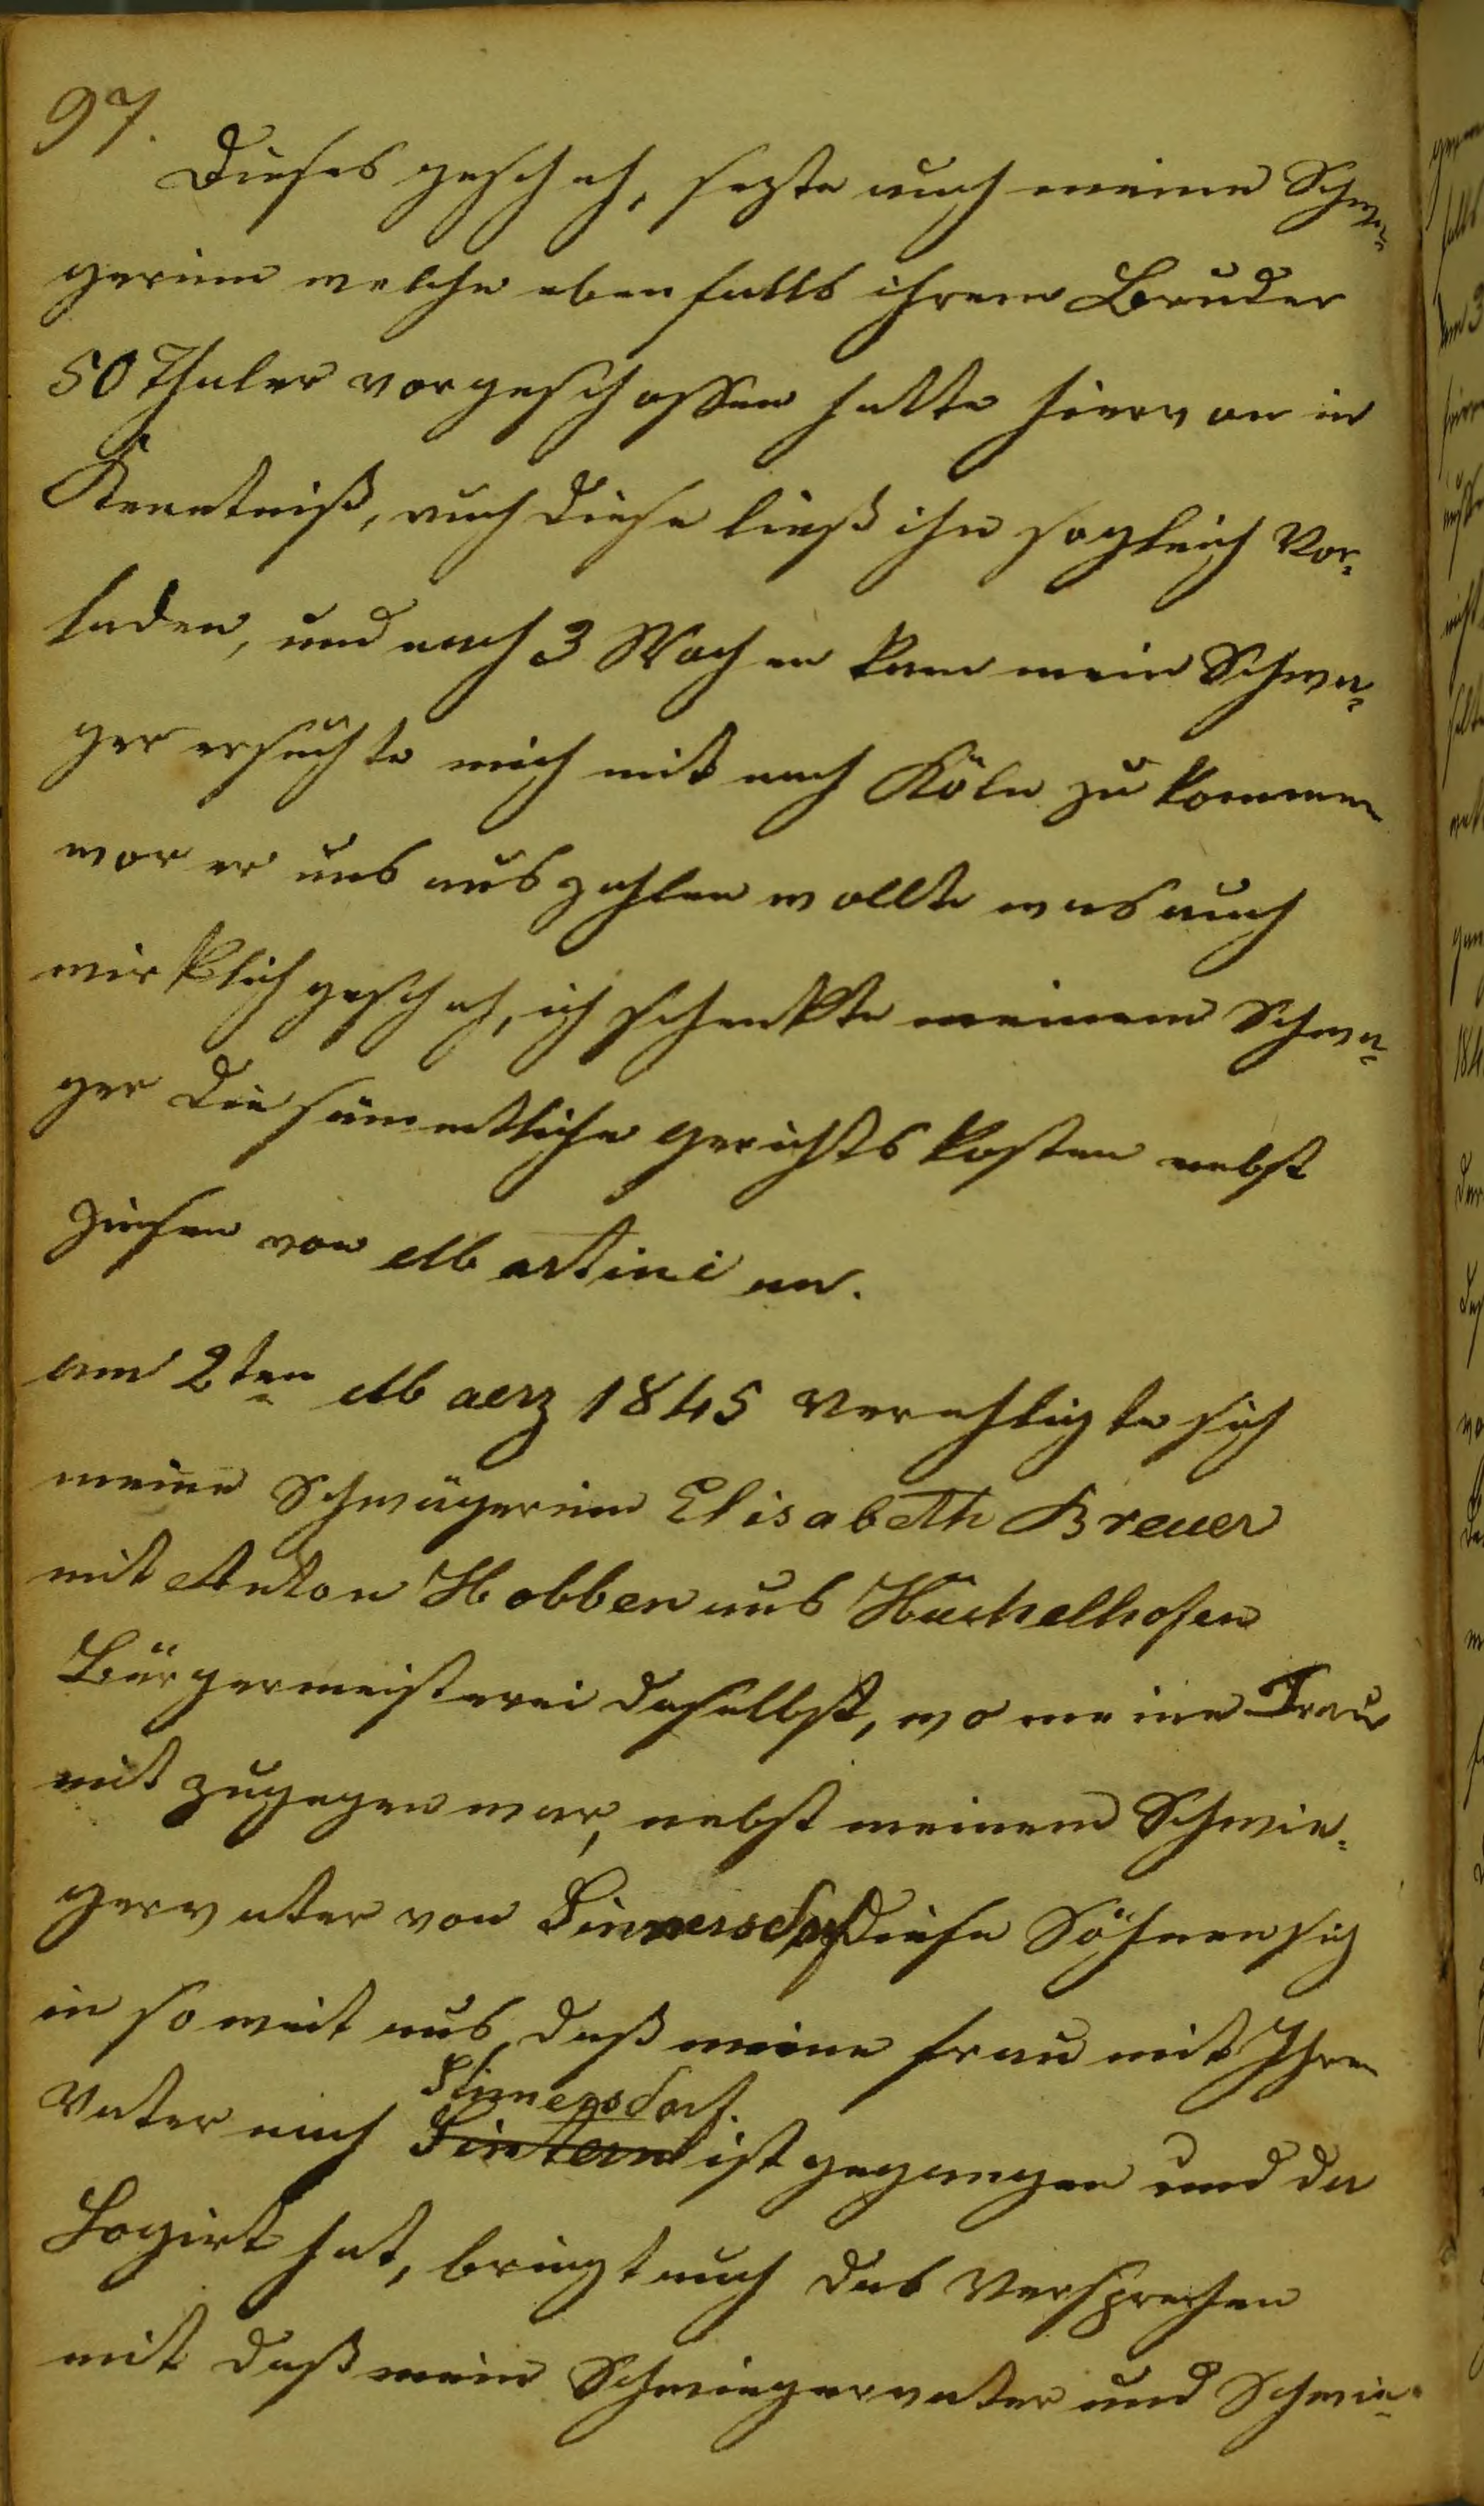 97.
Dieses geschah, sezte auch meine Schwä-
gerinn welche ebenfalls ihrem Bruder
50 Thaler vorgeschossen hatte hiervon in
Kenntniß, auch diese ließ ihn sogleich Vor-
laden, und nach 3 Wochen kam mein Schwa-
ger ersuchte mich mit nach Köln zu kommen
wor er uns auszahlen wollte was auch
wirklich geschah, ich schenkte meinem Schwa-
ger die sämmtliche gerichts kosten nebst
Zinsen von Martini an.
am 2ten Maerz 1845 verehligte sich
meine Schwägerinn Elisabeth Breuer
mit Anton Hobben aus Hückelhofen
Bürgermeisterei daselbst, wo meine Frau
mit zugegen war, nebst meinem Schwie-
gervater von Sinnersdorf diese Söhnen sich
in so weit aus, daß meine frau mit Ihrem
Sinnersdorf.
Vater nach Sintern ist gegangen und da
Logirt hat, bringt auch das Versprechen
mit daß mein Schwiegervater und Schwie-